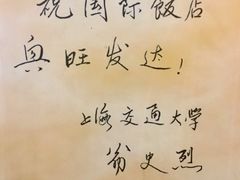 祝国际飯店
興旺发达！
上海交通大学
翁史烈